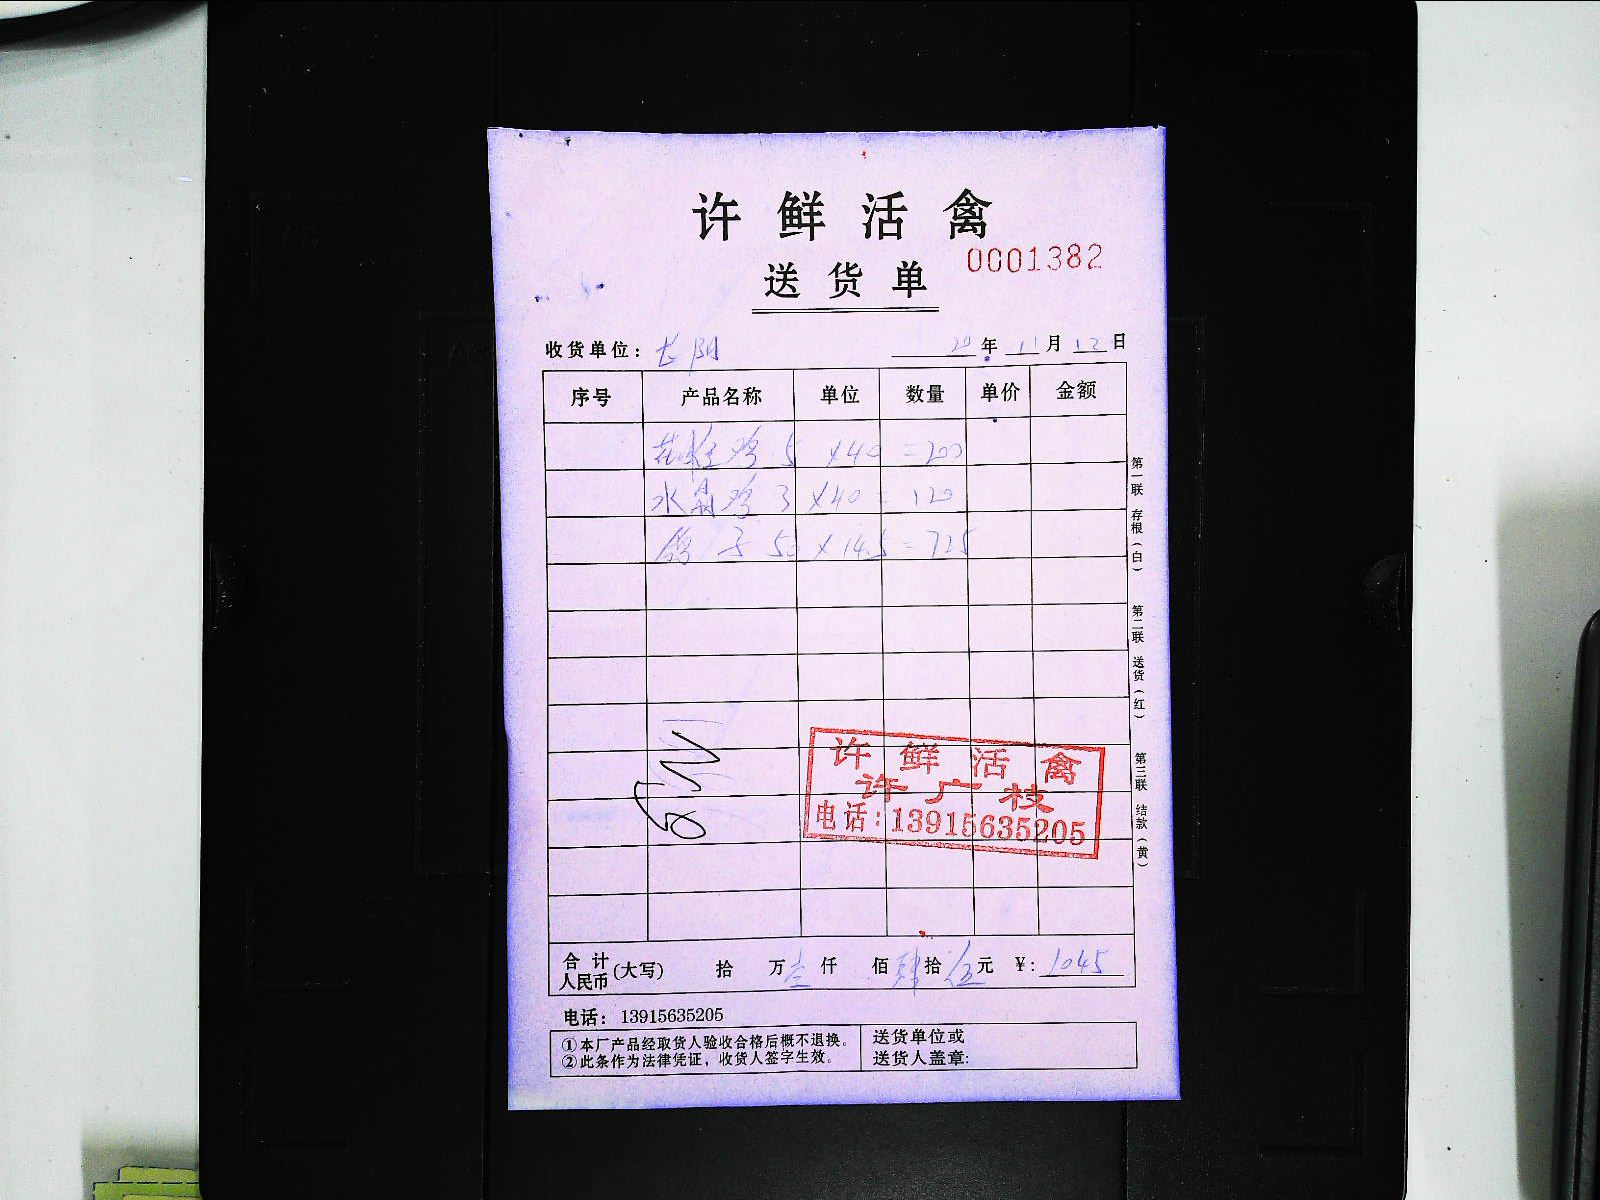 许鲜活禽
0001382
送货单
收货单位: 长阳 20年11月12日
序号 产品名称 单位 数量 单价 金额
花椒鸡 5 ×40 = 200
水晶鸡 3 ×40 = 120
鸽子 50 ×14.5 = 725
第一联 存根(白) 第二联 送货(红) 第三联 结款(黄)
许鲜活禽
许广枝
电话:13915635205
合计人民币(大写) 拾 万壹仟 佰肆拾伍元 ¥: 1045
电话: 13915635205
①本厂产品经取货人验收合格后概不退换。
②此条作为法律凭证，收货人签字生效。
送货单位或
送货人盖章: